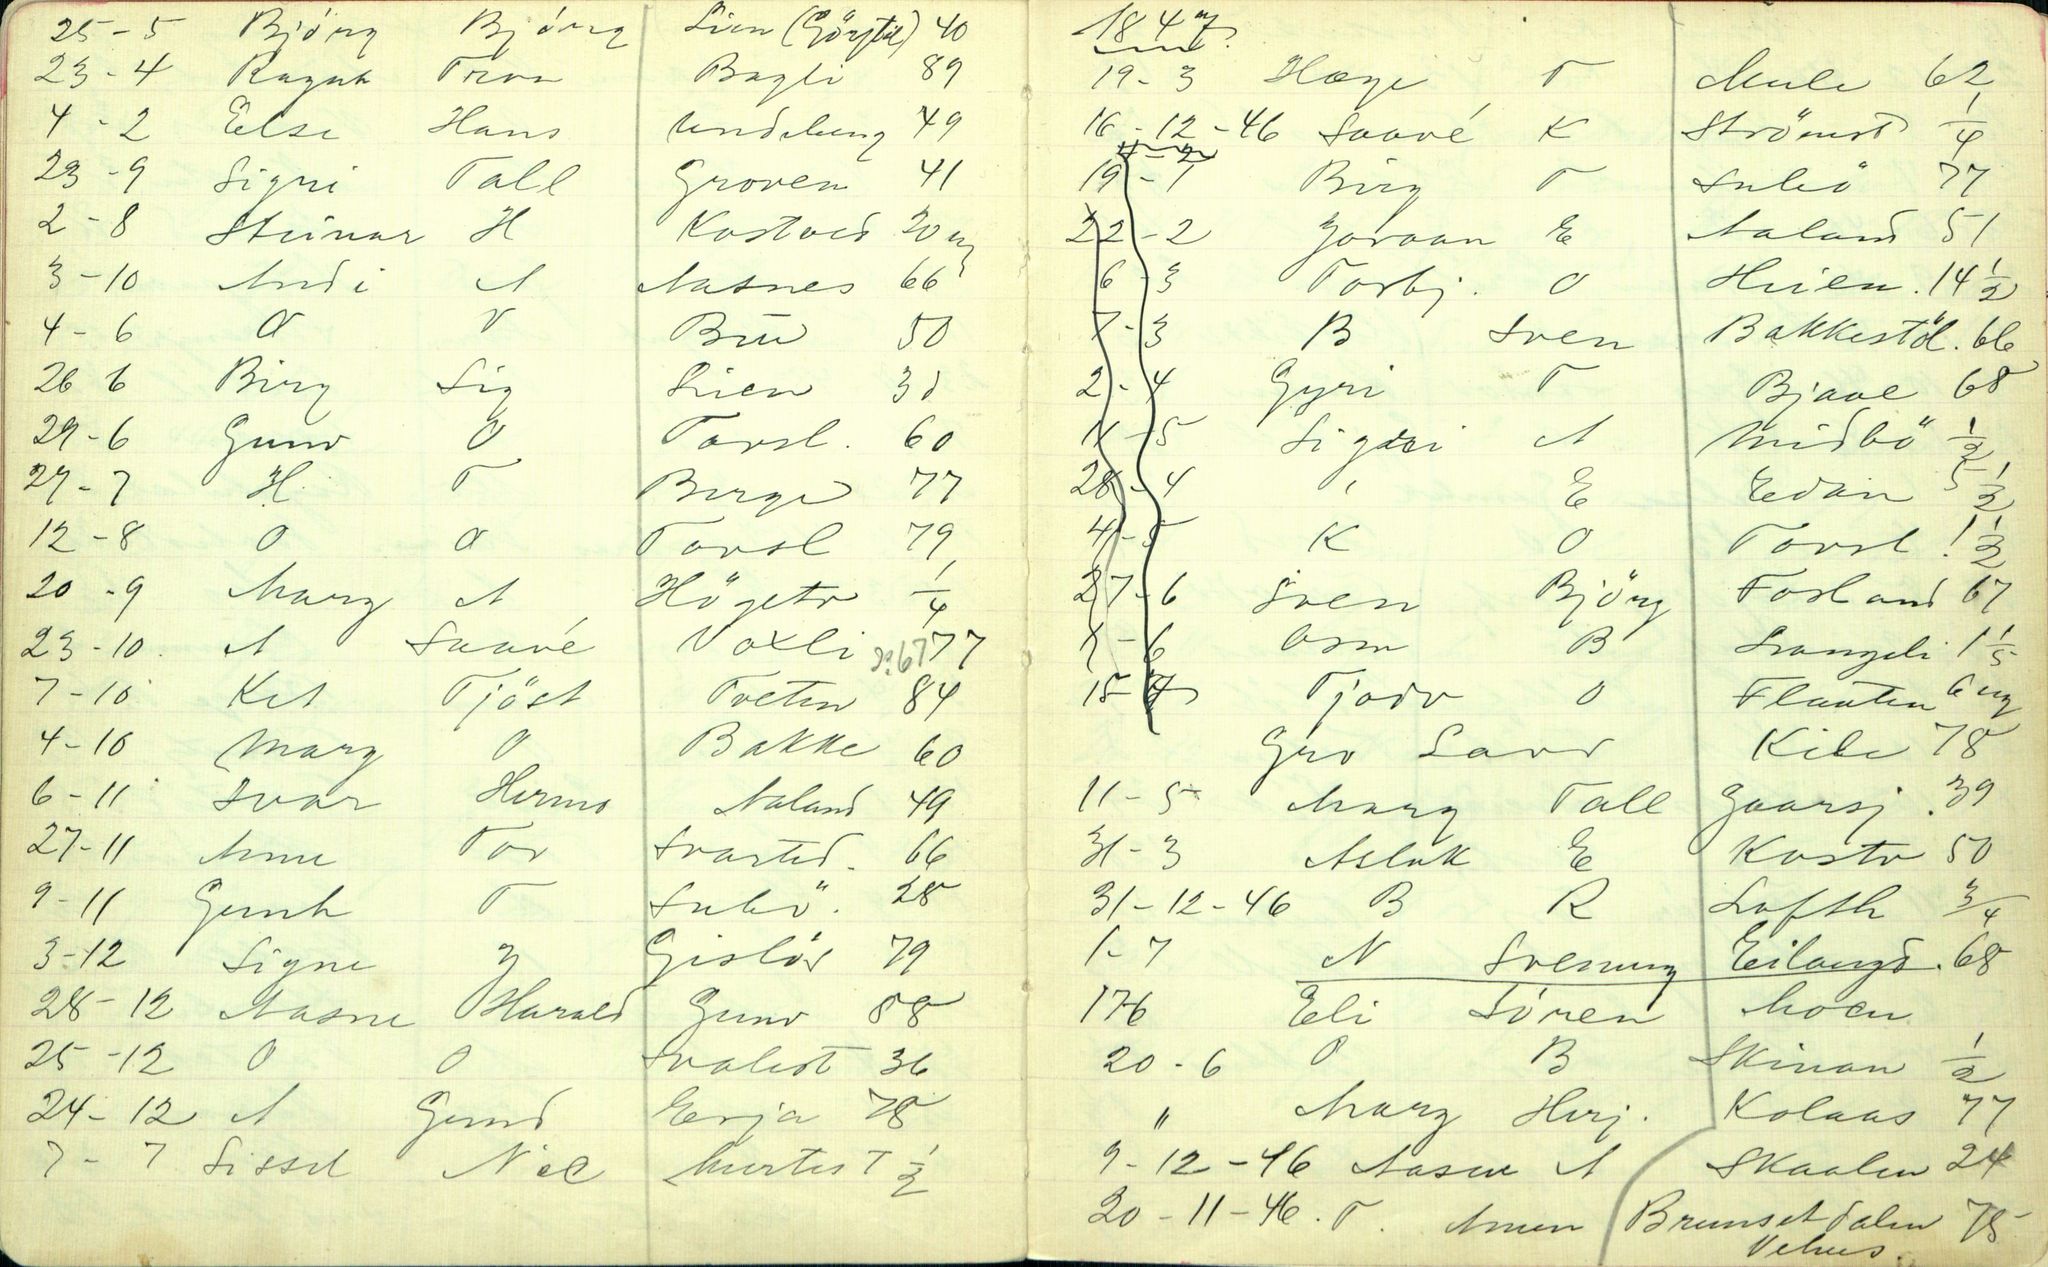 25 - 5 Björg Björg Lien (Görstöl) 40
23 - 4 Ragnh Tron Bagli 89
4 - 2 Else Hans Undeberg 49
23 - 9 Sigri Tall Groven 41
2 - 8 Steinar H Kostved 20 ug
3 - 10 Andi A Aasnes 66
4 - 6 O V Bu 50
26 6 Birg Sig Lien 30
29 - 6 Gunv O Torsl. 60
27 - 7 H T Berge 77
12 - 8 O O Torsl 79
20 - 9 Marg A Högetv 1/4
23 - 10. A Saavé Voxli 77
7 - 10 Ket Tjöst Tveten 84
4 - 10 Marg O Bakke 60
6 - 11 Ivar Hermo Aaland 49
27 - 11 Anne Tor Svarted. 66
9 - 11 Gunh T Sulö. 28
3 - 12 Signe G Gislöd 79
28 - 12 Aasne Harald Gunv 88
25 - 12 O O Svalest 36
24 - 12 A Gund Erja 78
7 - 7 Sissel Nic 1/2
1847.
19 - 3 Hæge T Mule 62
16 - 12 - 46 Saavé K Strömst 1/4
19 - 1 Birg T Sulö 77
22 - 2 Joraan E Aaland 51
6 - 3 Torbj. O Heien. 14 1/2
7 - 3 B Sven Bakkestöl. 66
2 - 4 Gyri T Bjaae 68
11 - 5 Sigri A Midbö 1/2
28 - 4 " E Edan 5 1/2
4 - 5 K O Torsl. 1 1/2
27 - 6 Sven Björg Fosland 67
1 - 6 Asm B Langeli 1 1/5
15 - 7 Tjodv O Flaaten 6 ug
Gro Lavr Kile 78
11 - 5 Marg Tall Gaarsj. 39
31 - 3 Aslak E Kostv 50
31 - 12 - 46 B R Lofth 3/4
1 - 7 N Svenung Eilangd. 68
17-6 Eli Sören Moen
20 - 6 O B Skinan 1/2
" Marg Herj. Kolaas 77
9 - 12 - 46 Aasne A Skaalen 24
20 - 11 - 46. T. Amun Brunsetdalen 75
Vehus.